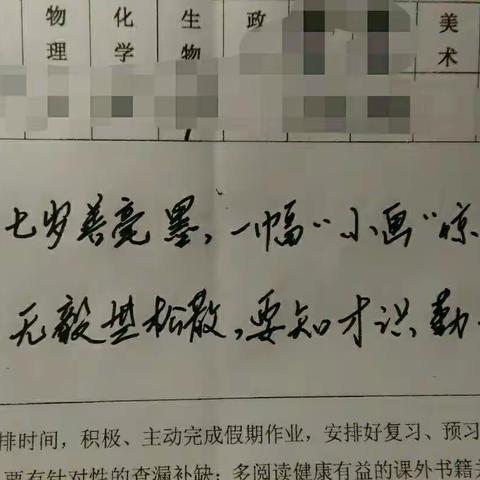 物理 化学 生物 政 美术
七岁善毫墨,一幅“小画”惊
无毅甚松散,要知才识勤
排时间,积极、主动完成假期作业,安排好复习、预习
要有针对性的查漏补缺;多阅读健康有益的课外书籍